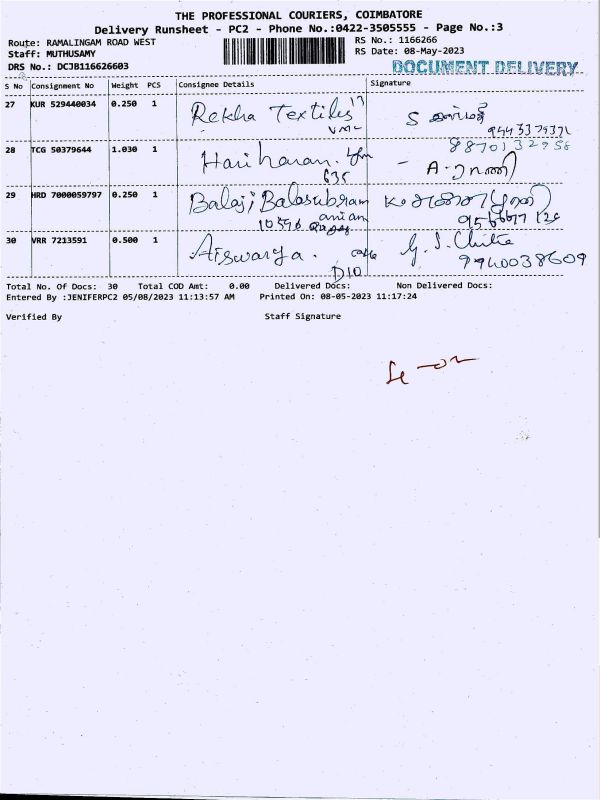 THE PROFESSIONAL COURIERS, COIMBATORE
Delivery Runsheet - PC2 - Phone No.:0422-3505555 - Page No.:3
Route: RAMALINGAM ROAD WEST
RS No.: 1166266
Staff: MUTHUSAMY
RS Date: 08-May-2023
DRS No.: DCJB116626603
DOCUMENT DELIVERY
S No Consignment No Weight PCS Consignee Details Signature
27 KUR 529440034 0.250 1 Rekha Textiles
28 TCG 50379644 1.030 1 Hari haran.
635
A. ராணி
29 HRD 7000059797 0.250 1 Balaji Balasubram
anian
30 VRR 7213591 0.500 1 Aiswarya. G. S. Chitra
D10 9940038609
Total No. Of Docs: 30 Total COD Amt: 0.00 Delivered Docs: Non Delivered Docs:
Entered By :JENIFERPC2 05/08/2023 11:13:57 AM Printed On: 08-05-2023 11:17:24
Verified By Staff Signature